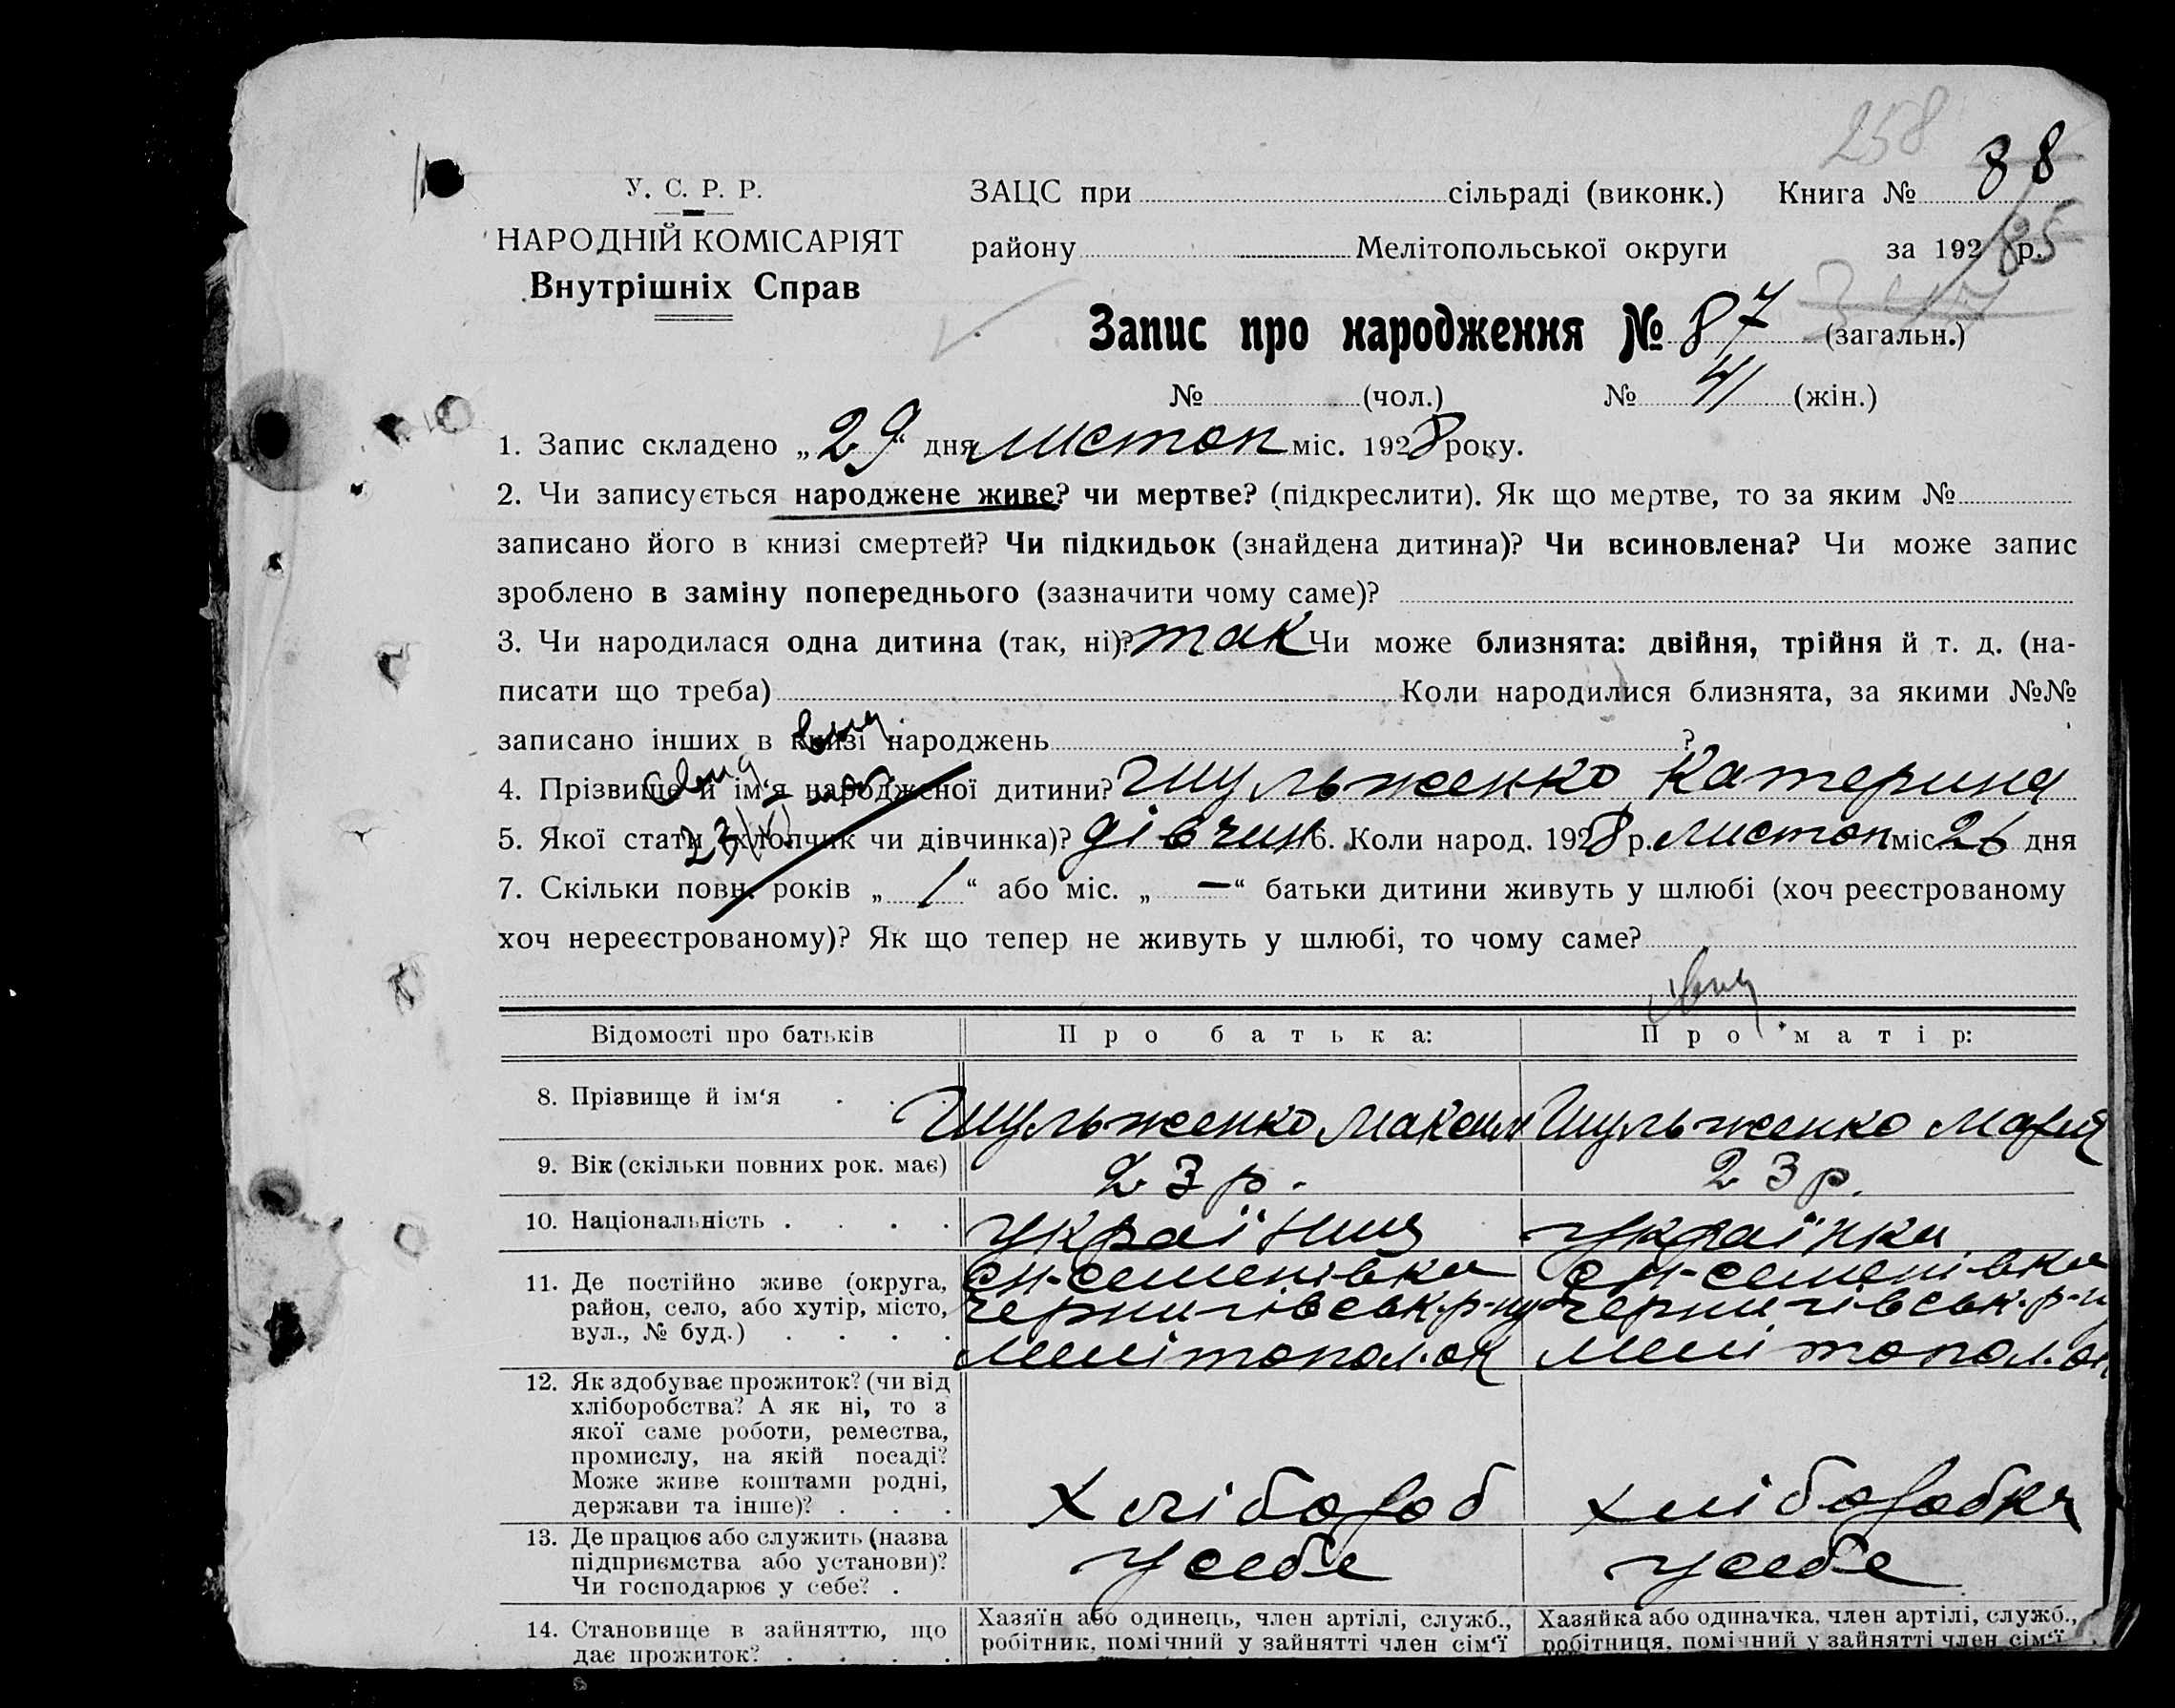 258
У. С. Р. Р.
ЗАЦС при сільраді (виконк.) Книга № 88
НАРОДНІЙ КОМІСАРІЯТ
району Мелітопольської округи за 192 р. 85
Внутрішніх Справ
Запис про народження № 87 (загальн.)
№ (чол.) № 41 (жін.)
1. Запис складено „29“ дня листоп міс. 1928 року.
2. Чи записується народжене живе? чи мертве? (підкреслити). Як що мертве, то за яким №
записано його в книзі смертей? Чи підкидьок (знайдена дитина)? Чи всиновлена? Чи може запис
зроблено в заміну попереднього (зазначити чому саме)?
3. Чи народилася одна дитина (так, ні)? так Чи може близнята: двійня, трійня й т. д. (на-
писати що треба) Коли народилися близнята, за якими №№
записано інших в книзі народжень ?
4. Прізвище й ім‘я народженої дитини? Шульженко Катерина
5. Якої статі (хлопчик чи дівчинка)? дівчин 6. Коли народ. 1928 р. листоп міс 26 дня
7. Скільки повн. років „ / “ або міс. „ — “ батьки дитини живуть у шлюбі (хоч реєстрованому
хоч нереєстрованому)? Як що тепер не живуть у шлюбі, то чому саме?
Відомості про батьків Про батька: Про матір:
8. Прізвище й ім‘я . . . Шульженко Максим Шульженко Мария
9. Вік (скільки повних рок. має) 23 р. 23 р.
10. Національність . . . . українць українка
11. Де постійно живе (округа, район, село, або хутір, місто, вул., № буд.) . . . .
Ен-Семенівка Ен-Семенівка
чернигівськ. р-ну чернигівськ. р-ну
Мелітопол. ок Мелітопол. ок
12. Як здобуває прожиток? (чи від
хліборобства? А як ні, то з
якої саме роботи, ремества,
промислу, на якій посаді?
Може живе коштами родні,
держави та інше)? . . . Хлібороб хлібобробка
13. Де працює або служить (назва
підприємства або установи)?
Чи господарює у себе? . у себе у себе
14. Становище в зайняттю, що Хазяїн або одинець, член артілі, служб., Хазяйка або одиначка, член артілі, служб.,
дає прожиток? . . . . робітник, помічний у зайнятті член сім‘ї робітниця, помічний у зайнятті член сім‘ї